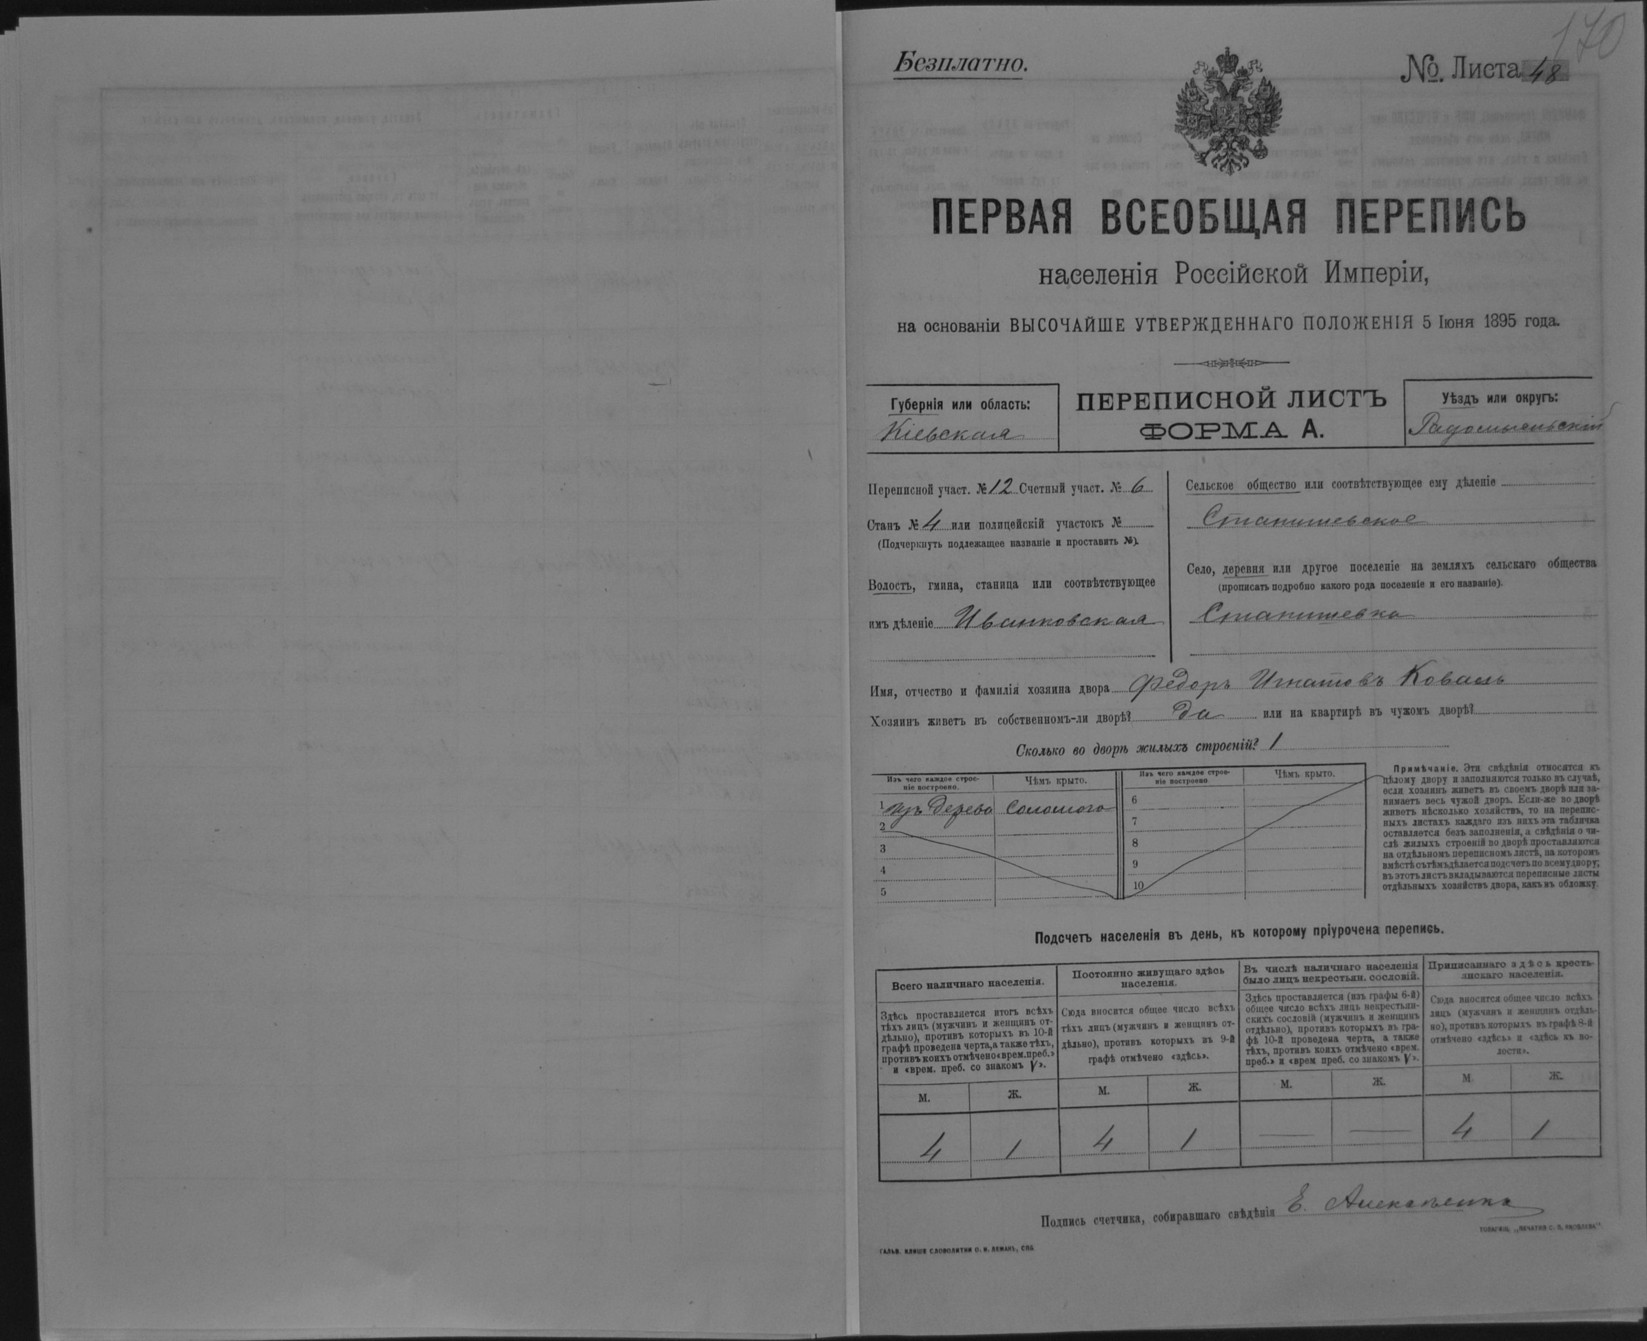 170
Безплатно.
№. Листа 48
ПЕРВАЯ ВСЕОБЩАЯ ПЕРЕПИСЬ
населенія Россійской Имперіи,
на основаніи ВЫСОЧАЙШЕ УТВЕРЖДЕННАГО ПОЛОЖЕНІЯ 5 Іюня 1895 года.
Губернія или область:
Кіевская
ПЕРЕПИСНОЙ ЛИСТЪ
ФОРМА А.
Уѣздъ или округъ:
Радомысльскій
Переписной участ. № 12 Счетный участ. № 6
Станъ № 4 или полицейскій участокъ №
(Подчеркнуть подлежащее названіе и проставить №).
Волость, гмина, станица или соотвѣтствующее
имъ дѣленіе Иванковская
Сельское общество или соотвѣтствующее ему дѣленіе
Станишевское
Село, деревня или другое поселеніе на земляхъ сельскаго общества
(прописать подробно какого рода поселеніе и его названіе).
Станишевка
Имя, отчество и фамилія хозяина двора Федоръ Игнатовъ Коваль
Хозяинъ живетъ въ собственномъ-ли дворѣ? Да или на квартирѣ въ чужомъ дворѣ?
Сколько во дворѣ жилыхъ строеній? 1
Изъ чего каждое строе-
ніе построено.
Чѣмъ крыто.
Изъ чего каждое строе-
ніе построено.
Чѣмъ крыто.
1 изъ дерева соломою
2
3
4
5
6
7
8
9
10
Примѣчаніе. Эти свѣдѣнія относятся къ
цѣлому двору и заполняются только въ случаѣ,
если хозяинъ живетъ въ своемъ дворѣ или за-
нимаетъ весь чужой дворъ. Если-же во дворѣ
живетъ нѣсколько хозяйствъ, то на перепис-
ныхъ листахъ каждаго изъ нихъ эта табличка
оставляется безъ заполненія, а свѣдѣнія о чи-
слѣ жилыхъ строеній во дворѣ проставляются
на отдѣльномъ переписномъ листѣ, на которомъ
вмѣстѣ съ тѣмъ дѣлается подсчетъ по всему двору;
въ этотъ листъ вкладываются переписные листы
отдѣльныхъ хозяйствъ двора, какъ въ обложку.
Подсчетъ населенія въ день, къ которому пріурочена перепись.
Всего наличнаго населенія.
Здѣсь проставляется итогъ всѣхъ
тѣхъ лицъ (мужчинъ и женщинъ от-
дѣльно), противъ которыхъ въ 10-й
графѣ проведена черта, а также тѣхъ,
противъ коихъ отмѣчено «врем. преб.»
и «врем. преб. со знакомъ V».
Постоянно живущаго здѣсь
населенія.
Сюда вносится общее число всѣхъ
тѣхъ лицъ (мужчинъ и женщинъ от-
дѣльно), противъ которыхъ въ 9-й
графѣ отмѣчено «здѣсь».
Въ числѣ наличнаго населенія
было лицъ некрестьян. сословій.
Здѣсь проставляется (изъ графы 6-й)
общее число всѣхъ лицъ некрестьян-
скихъ сословій (мужчинъ и женщинъ
отдѣльно), противъ которыхъ въ гра-
фѣ 10-й проведена черта, а также
тѣхъ, противъ коихъ отмѣчено «врем.
преб.» и «врем. преб. со знакомъ V».
Приписаннаго здѣсь кресть-
янскаго населенія.
Сюда вносится общее число всѣхъ
лицъ (мужчинъ и женщинъ отдѣль-
но), противъ которыхъ въ графѣ 8-й
отмѣчено «здѣсь» и «здѣсь къ во-
лости».
М. Ж. М. Ж. М. Ж. М. Ж.
4 1 4 1 — — 4 1
Подпись счетчика, собиравшаго свѣдѣнія Е.
ГАЛЬВ. КЛИШЕ СЛОВОЛИТНИ О. И. ЛЕМАНЪ, СПБ